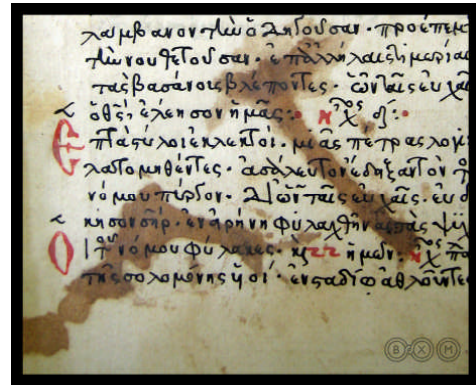 λαμβανον τὴν ὁδηγοῦσαν· προέπεμ
τὴν νουθετοῦσαν· ἐπαλλήλαις τιμωρίαι
τὰς βασάνοις βλέποντες· ὧν ταῖς εὐχα
ὁ θς, ἐλέησον ἡμᾶς: ἦχος
Ἑπτὰ στύλοι ἐκλεκτοί· μιᾶς πέτρας λογι
λατομηθέντες· ἀσάλευτον ἐδείξαν τὸν
νόμου πύργον· ὧν ταῖς εὐχαῖς· εὐ
κησον σηρ· ἐν εἰρήνη φυλαχθῆναι τὰς ψυ
Οἱ τοῦ νόμου φύλακες· ἡμῶν· ἦχος
τῆς σολομονῆς υἱοί· ἐν σταδίῳ ἀθλοῦντες
BXM